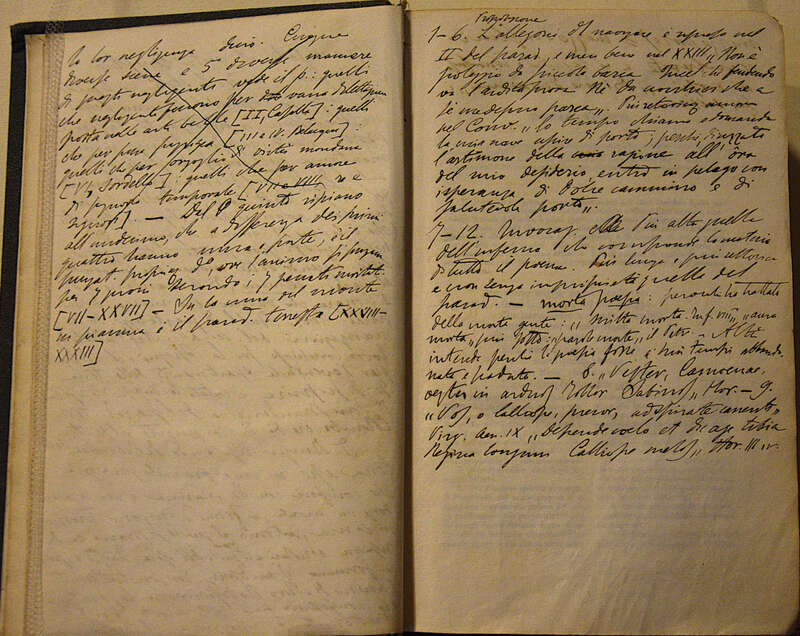 la lor negligenza dies. Cinque
diverse schiere e 5 diverse maniere
di questi negligenti vede il p: quelli
che negligenti furono per
posta nelle arti belle [II, Casella]: quelli
che per pura pigrizia [III e IV, Belacqua]:
quelli che per orgoglio di virtù mondana
[VI, Sordello]: quelli che per amore
di temporale [VII e VIII, re e
signori] — Del quinto ripiano
all'ultimo, che a differenza dei primi
quattro hanno mura e porta, è il
purgat. propriam. do. ove l'animo si purga
per 7 gironi secondo i 7 peccati mortali
[VII–XXVII] — In la cima del monte
in pianura è il parad. terrestre [XXVIII–
XXXIII]
Proposizione
1–6. L'allegoria del navigare è ripresa nel
II del parad. e men bene nel XXIII „ Non è
poleggio da piccola barca Quel che fendendo
va l'ardita prora Nè da nocchier che a
sè medesmo parca „.
nel Conv. „ lo tempo chiama e domanda
la mia nave uscire di porto; perchè, drizzato
l'artimone della ragione all'òra
del mio desiderio, entro in pelago con
isperanza di dolce cammino e di
salutevole porto „.
7–12. Invocaz. Più alta quella
dell'inferno che corrisponde la materia
di tutto il poema. Più lunga e più rettorica
e non senza quella del
parad. — morta poesia: perocchè ha trattato
della morta gente: „ Scritta morta. Inf. VIII „ „ aura
morta „ più sotto: „ parole morte „ il Petr. – Altri
intende perchè la poesia fosse a' suoi tempi abbando-
nata e scaduta. — 8. „ Vester, Camoenae,
vester in arduos Tollor Sabinos „ Hor. — 9.
„ Vos, o Calliope, precor, adspirate canenti „
Virg. Aen. IX „ Descende coelo et dic age tibia
Regina longum Calliope melos „ Hor. III. IV.